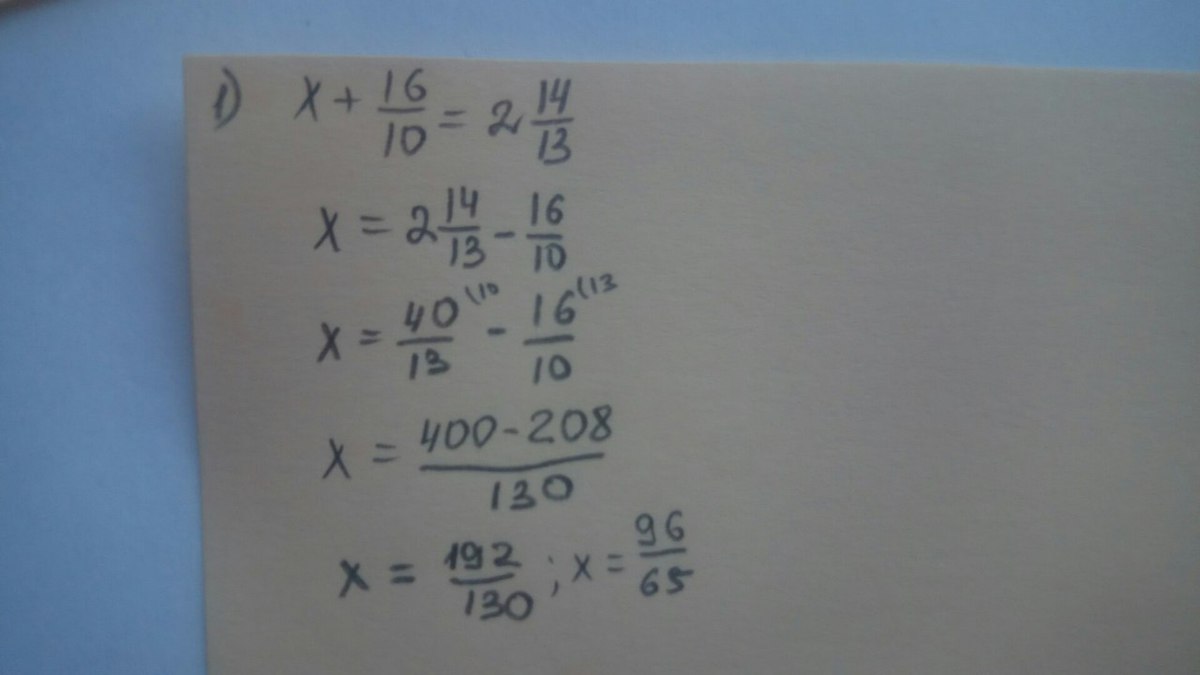 1) x + 16/10 = 2 14/13
x = 2 14/13 - 16/10
x = 40/13 \10 - 16/10 \13
x = 400-208/130
x = 192/130 ; x = 96/65